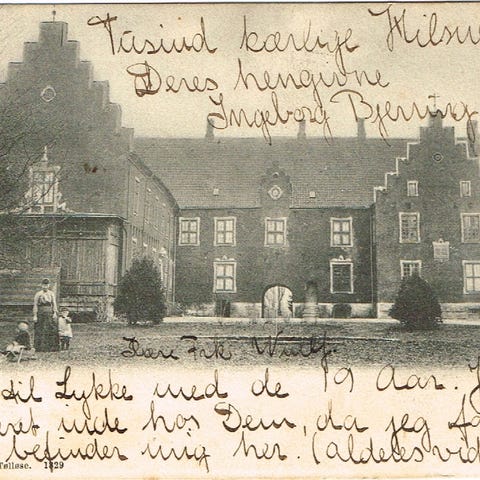 Tusind kærlige Hilsn
Deres hengivne
Ingeborg Bjerring
Kære Frk Wulff.
til Lykke med de 19 Aar. J
ret inde hos Dem, da jeg f
befinder mig her. (alderes vid
Tølløse. 1329